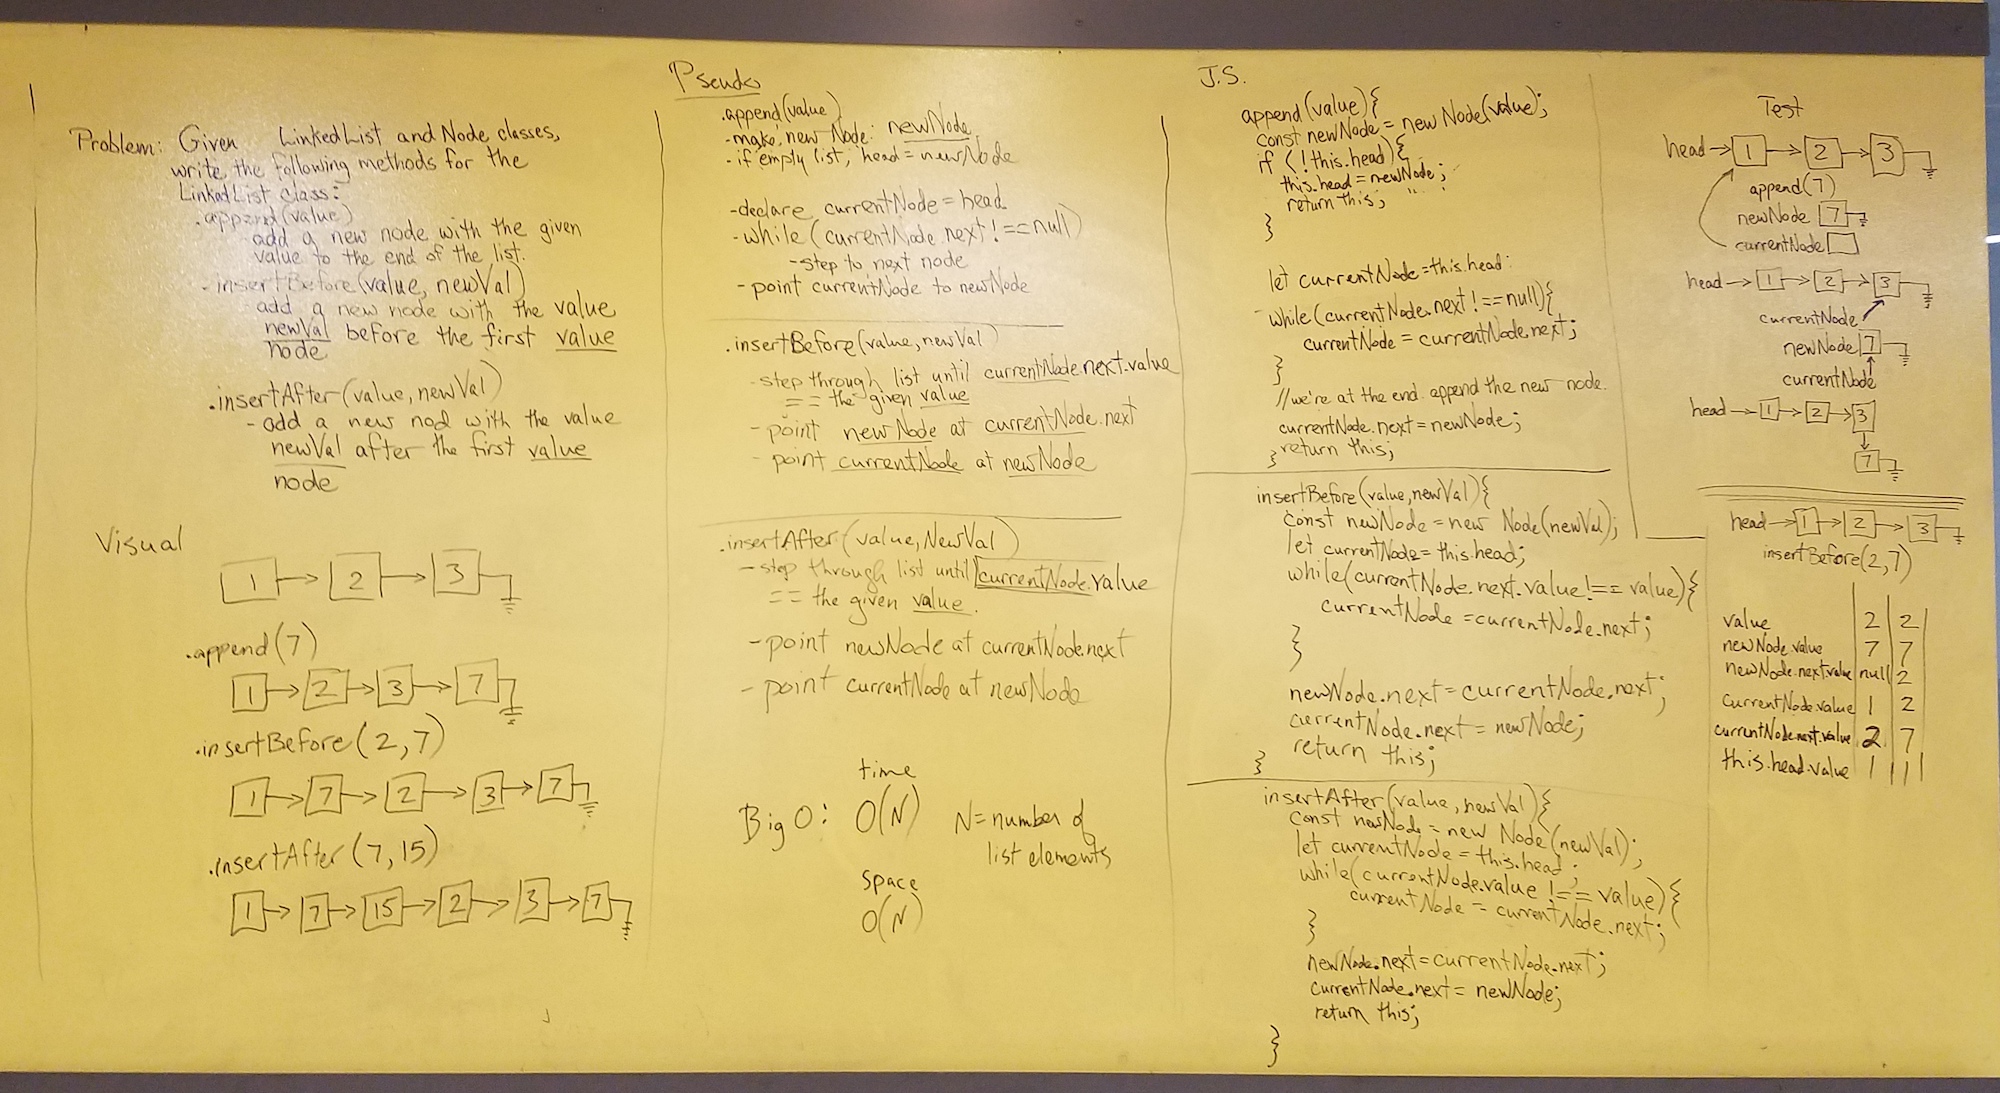 Problem: Given LinkedList and Node classes,
write the following methods for the
LinkedList class:
.append(value)
- add a new node with the given
value to the end of the list.
- insertBefore(value, newVal)
add a new node with the value
newVal before the first value
node
.insertAfter(value, newVal)
- add a new nod with the value
newVal after the first value
node
Visual
1 2 3
.append(7)
1 2 3 7
.insertBefore(2,7)
1 7 2 3 7
.insertAfter(7,15)
1 7 15 2 3 7
Pseudo
.append(value)
- make new Node: newNode
- if empty list, head = newNode
- declare currentNode = head
- while (currentNode.next !== null)
- step to next node
- point currentNode to newNode
.insertBefore(value, newVal)
- step through list until currentNode.next.value
== the given value
- point newNode at currentNode.next
- point currentNode at newNode
.insertAfter(value, NewVal)
- step through list until currentNode.value
== the given value.
- point newNode at currentNode.next
- point currentNode at newNode
time
Big O: O(N) N = number of
list elements
space
O(N)
J.S.
append(value){
const newNode = new Node(value);
if (!this.head){
this.head = newNode;
return this;
}
let currentNode = this.head;
while(currentNode.next !== null){
currentNode = currentNode.next;
}
//we're at the end. append the new node.
currentNode.next = newNode;
return this;
}
insertBefore(value, newVal){
const newNode = new Node(newVal);
let currentNode = this.head;
while(currentNode.next.value !== value){
currentNode = currentNode.next;
}
newNode.next = currentNode.next;
currentNode.next = newNode;
return this;
}
insertAfter(value, newVal){
const newNode = new Node(newVal);
let currentNode = this.head;
while(currentNode.value !== value){
currentNode = currentNode.next;
}
newNode.next = currentNode.next;
currentNode.next = newNode;
return this;
}
Test
head 1 2 3
append(7)
newNode 7
currentNode
head 1 2 3
currentNode
newNode 7
currentNode
head 1 2 3
7
head 1 2 3
insertBefore(2,7)
value 2 2
newNode.value 7 7
newNode.next.value null 2
currentNode.value 1 2
currentNode.next.value 2 7
this.head.value 1 1